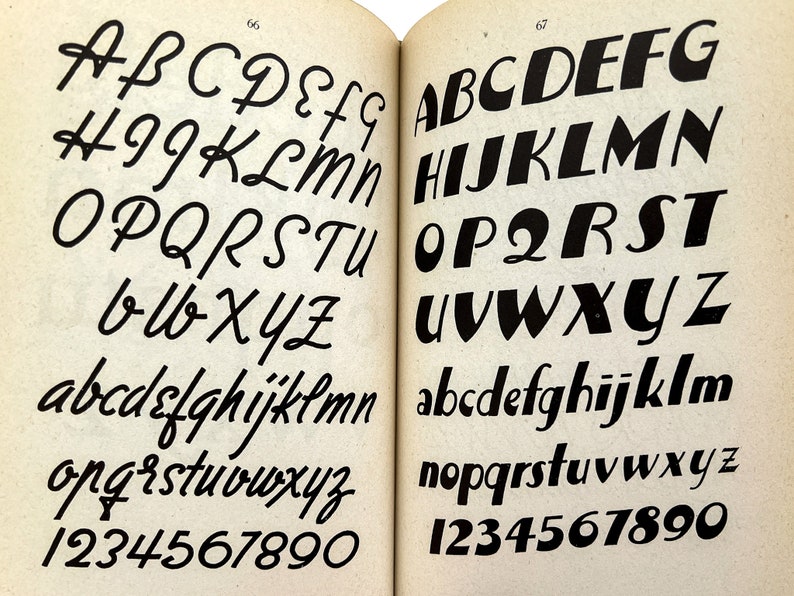 66
ABCDEFG
HIJKLMN
OPQRSTU
VWXYZ
abcdefghijklmn
opqrstuvwxyz
1234567890
67
ABCDEFG
HIJKLMN
OPQRST
UVWXYZ
abcdefghijklm
nopqrstuvwxyz
1234567890